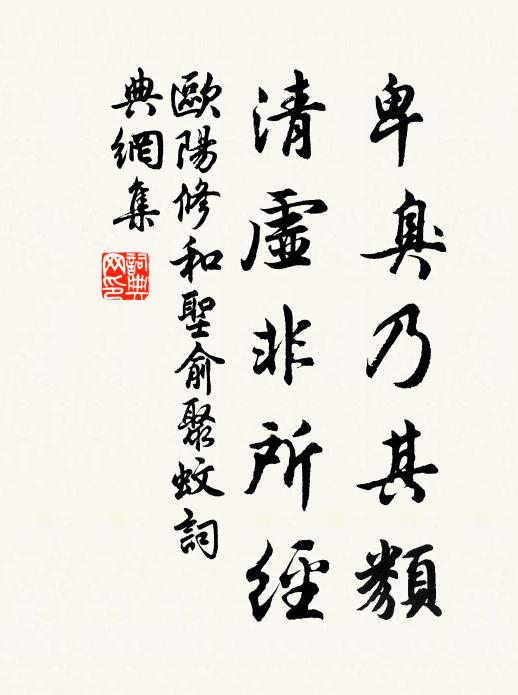 卑臭乃其類
清虛非所經
歐陽修和聖俞聚蚊詞
典網集
詞典
网印